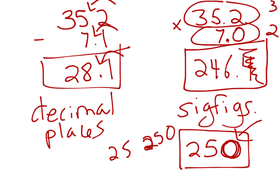 35.2
- 7.1
28.1
decimal
places
35.2 3
x 7.0 2
246.4
sigfigs.
25 250 250